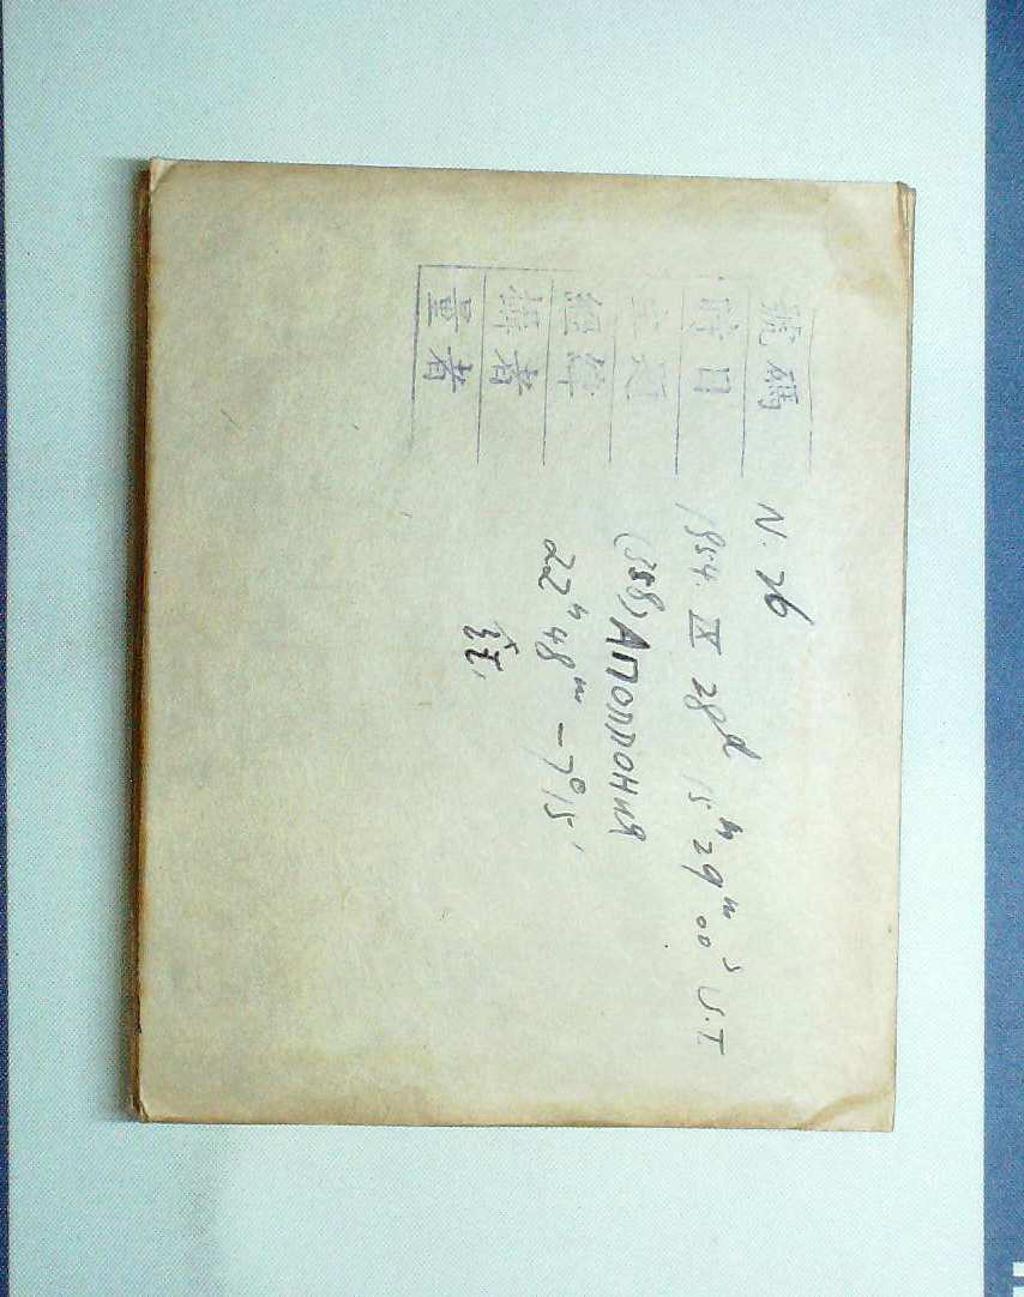 號碼 N. 26
時日 1954. IX 28d 15h 29m 00s U.T
(358) Аполлония
經緯 22h 48m -7°15'
攝者
量者